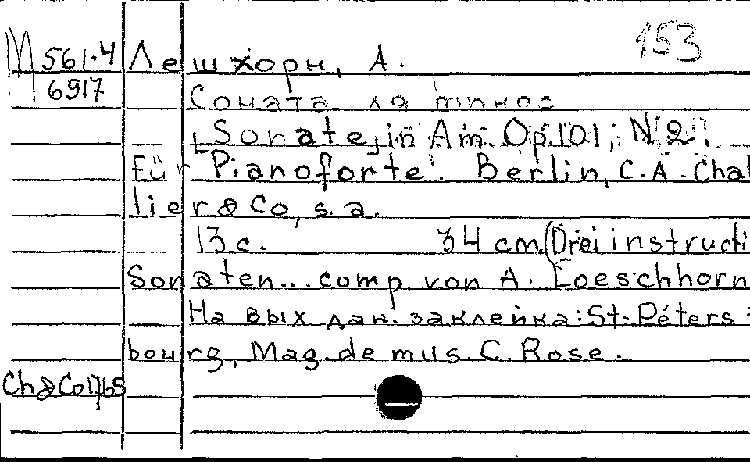 M 561.4 Лешхорн, А. 153
6917 Соната ля минор
Sonate, in Am. Op.101, N 2.
für Pianoforte. Berlin, C.A. Chal
lier & Co, s.a.
13 с. 34 cm. (Drei instructi
Sonaten... comp. von A. Loeschhorn
На вых. дан. заклейка: St.-Péters=
bourg, Mag. de mus. C. Rose.